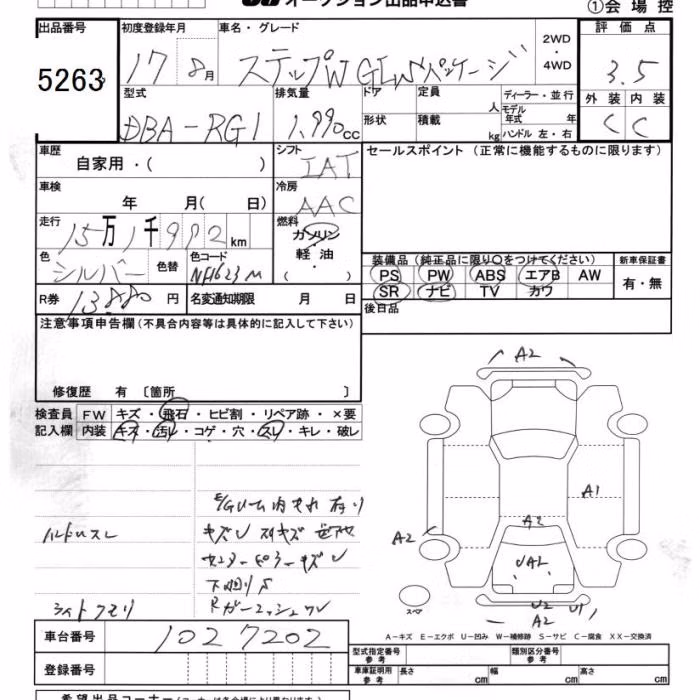 オークション出品申込書 ①会場控
出品番号 初度登録年月 車名・グレード 2WD・4WD 評価点
5263 17 8月 ステップW G LSパッケージ 3.5
型式 排気量 ドア 定員 人 ディーラー・並行 外装 内装
DBA-RG1 1,990cc 形状 積載 kg モデル年式 年 ハンドル 左・右 C C
車歴 自家用・( ) シフト IAT セールスポイント (正常に機能するものに限ります)
車検 年 月( 日) 冷房 AAC
走行 15万1千992km 燃料 ガソリン
色 シルバー 色替 色コード NH623M 軽油 ( )
装備品 (純正品に限り○をつけてください) 新車保証書
PS PW ABS エアB AW 有・無
SR ナビ TV カワ
R券 13880円 名変通知期限 月 日
後日品
注意事項申告欄(不具合内容等は具体的に記入して下さい)
修復歴 有 〔箇所 〕
検査員 FW キズ・飛石・ヒビ割・リペア跡・×要
記入欄 内装 キズ・汚レ・コゲ・穴・スレ・キレ・破レ
ハンドルスレ
センターピラーキズU
下回りS
ライトクモリ
A2
A1
A2
A2
UA2
スペア
U2 U1
A2
A-キズ E-エクボ U-凹み W-補修跡 S-サビ C-腐食 XX-交換済
車台番号 1027202
登録番号
型式指定番号 参考 類別区分番号 参考
車庫証明用 参考 長さ cm 幅 cm 高さ cm
希望出品コーナー